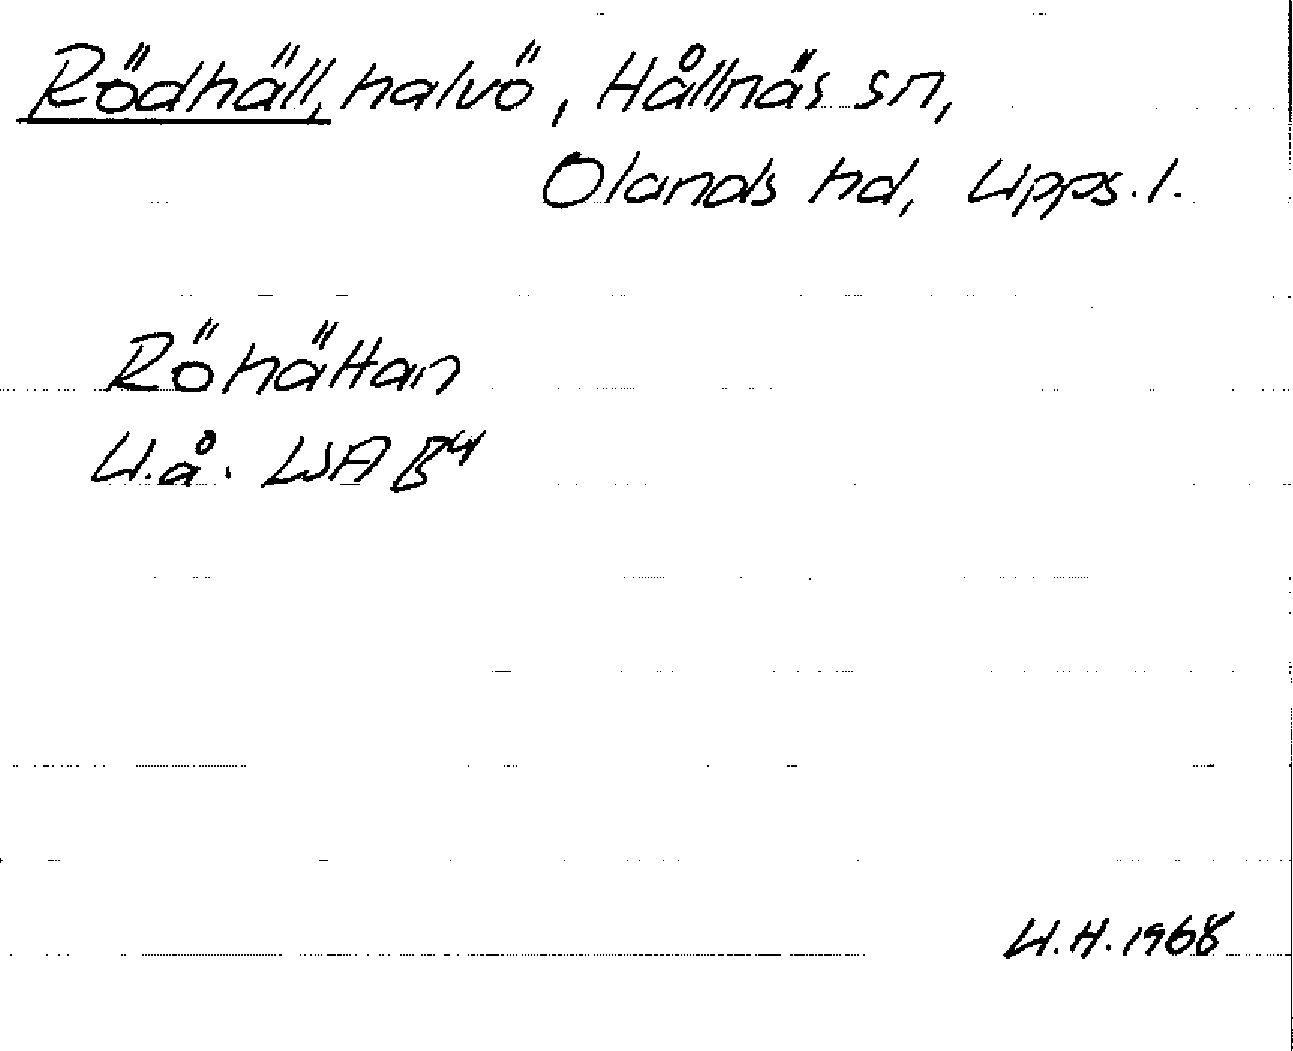 Rödhäll, halvö, Hållnäs sn,
Olands hd, Upps. l.
Röhättan
U.å. LSA B⁴
U.H. 1968